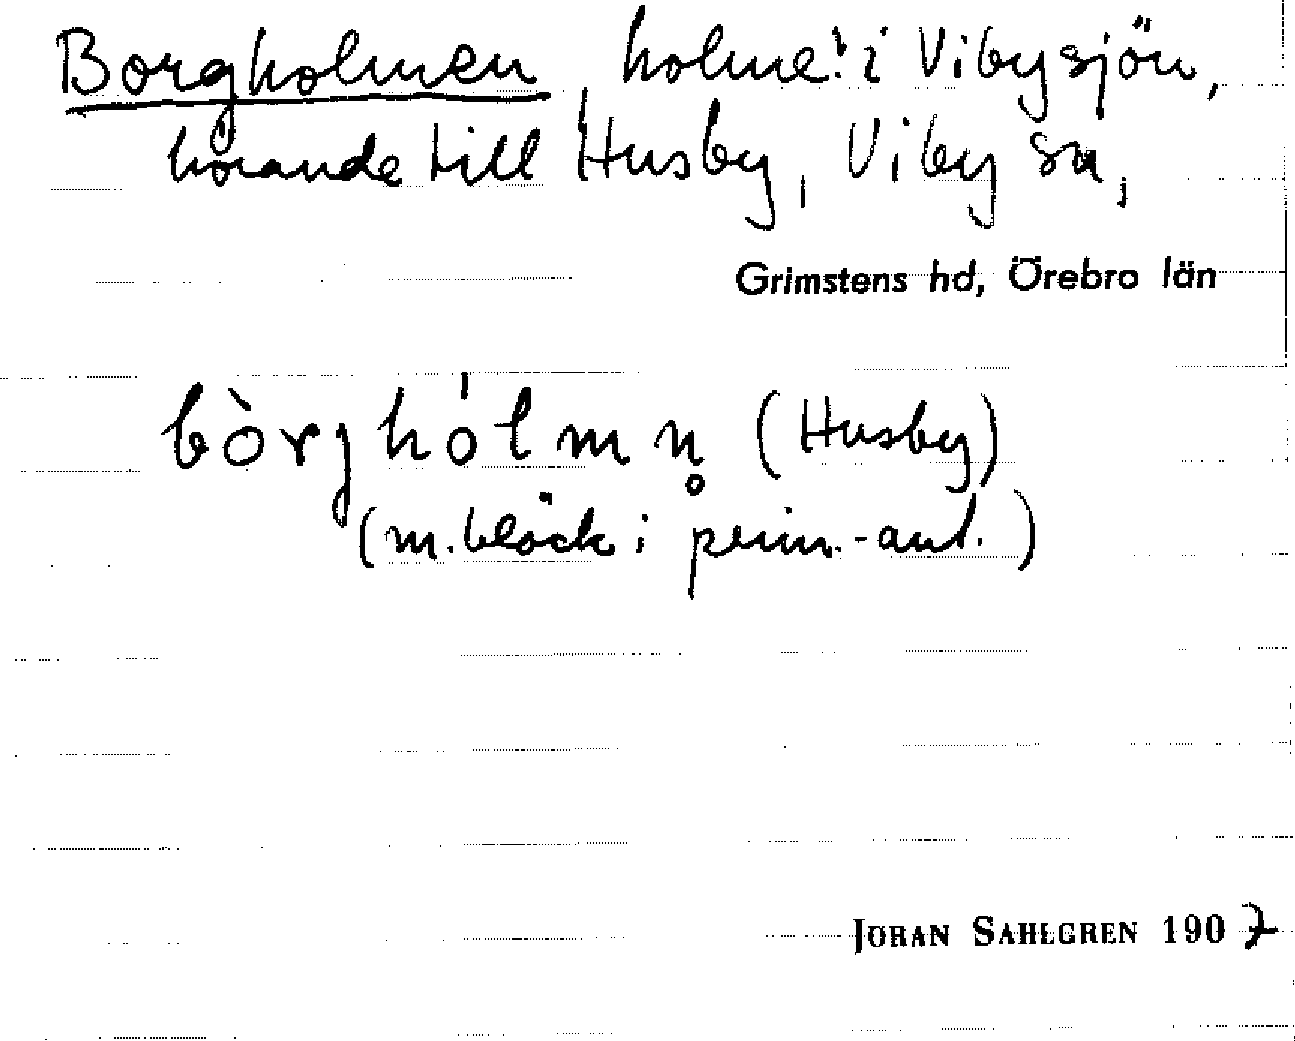 Borgholmen, holme! i Vibysjön,
hörande till Husby, Viby sn,
Grimstens hd, Örebro län
bòrghólmn̥ (Husby)
(m. bläck i prim.-ant.)
JÖRAN SAHLGREN 1907